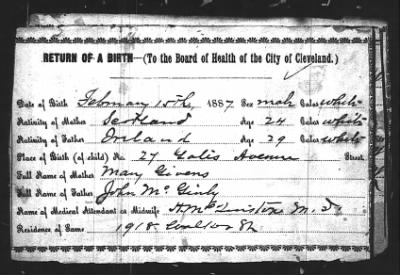 RETURN OF A BIRTH—(To the Board of Health of the City of Cleveland.)
Date of Birth February 15th, 1887 Sex male Color white
Nativity of Mother Scotland Age 24 Color white
Nativity of Father Ireland Age 29 Color white
Place of Birth (of child) No. 27 Avenue Street
Full Name of Mother Mary Givens
Full Name of Father John McGinty
Name of Medical Attendant or Midwife M.D.
Residence of Same 1918